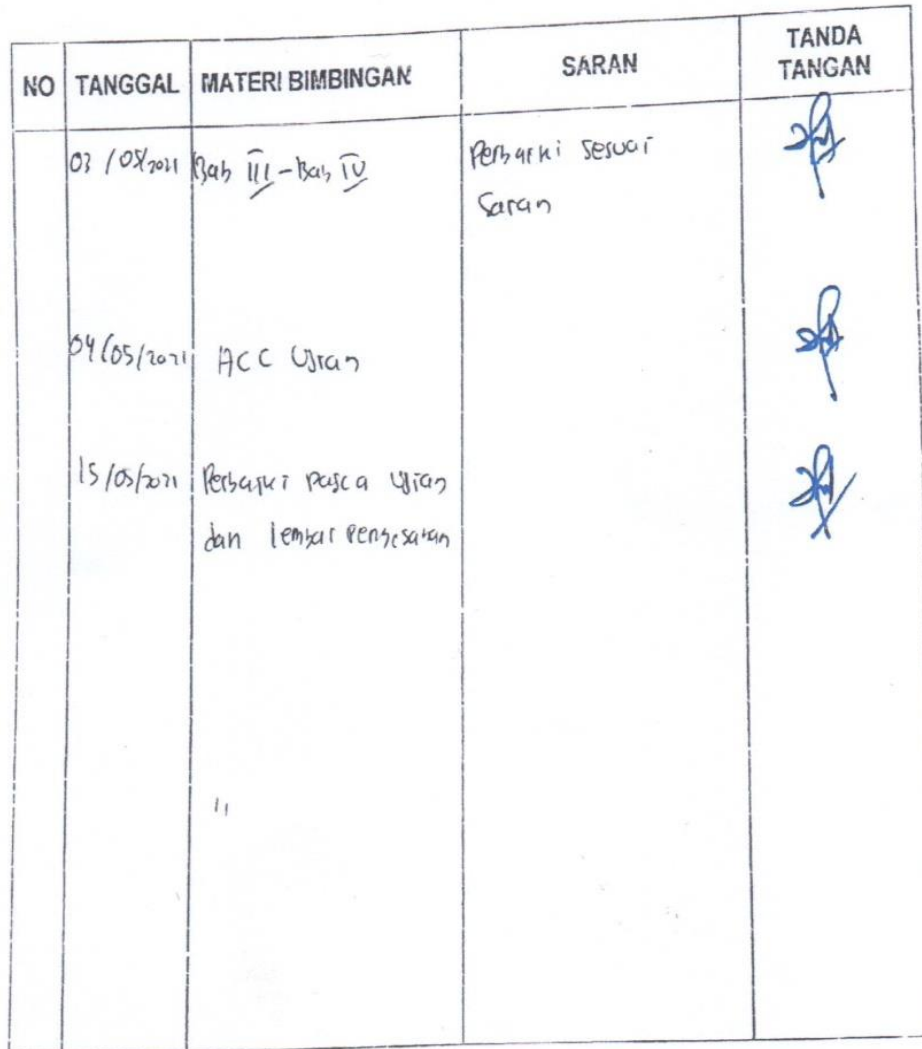 NO TANGGAL MATERI BIMBINGAN SARAN TANDA TANGAN
03/05/2021 Bab III - Bab IV Perbaiki sesuai
Saran
04/05/2021 ACC Ujian
15/05/2021 Perbaiki pasca Ujian
dan lembar pengesahan